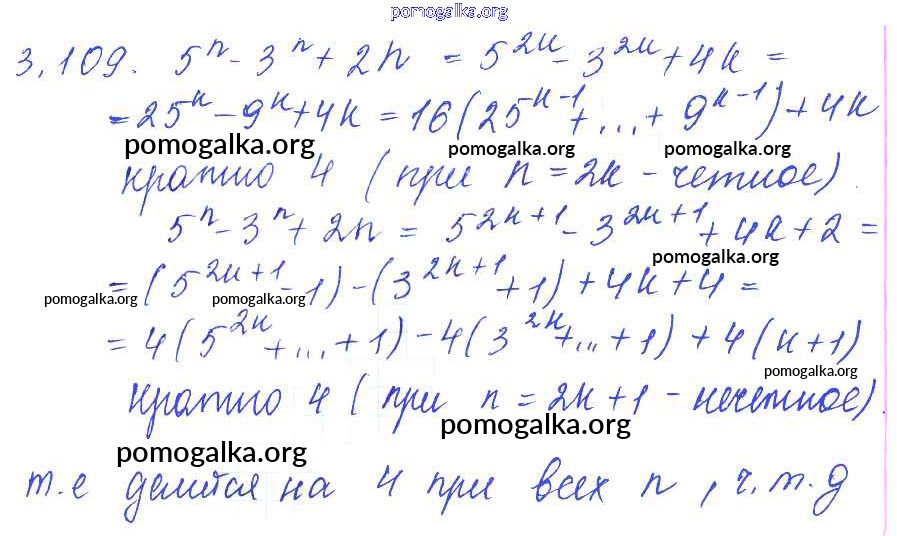 pomogalka.org
3.109. 5^n - 3^n + 2n = 5^{2k} - 3^{2k} + 4k =
= 25^k - 9^k + 4k = 16(25^{k-1} + ... + 9^{k-1}) + 4k
pomogalka.org pomogalka.org pomogalka.org
кратно 4 (при n = 2k - четное).
5^n - 3^n + 2n = 5^{2k+1} - 3^{2k+1} + 4k + 2 =
pomogalka.org
= (5^{2k+1} - 1) - (3^{2k+1} + 1) + 4k + 4 =
pomogalka.org pomogalka.org
= 4(5^{2k} + ... + 1) - 4(3^{2k} + ... + 1) + 4(k+1)
pomogalka.org
кратно 4 (при n = 2k+1 - нечетное).
pomogalka.org
pomogalka.org
т.е делится на 4 при всех n, ч.т.д